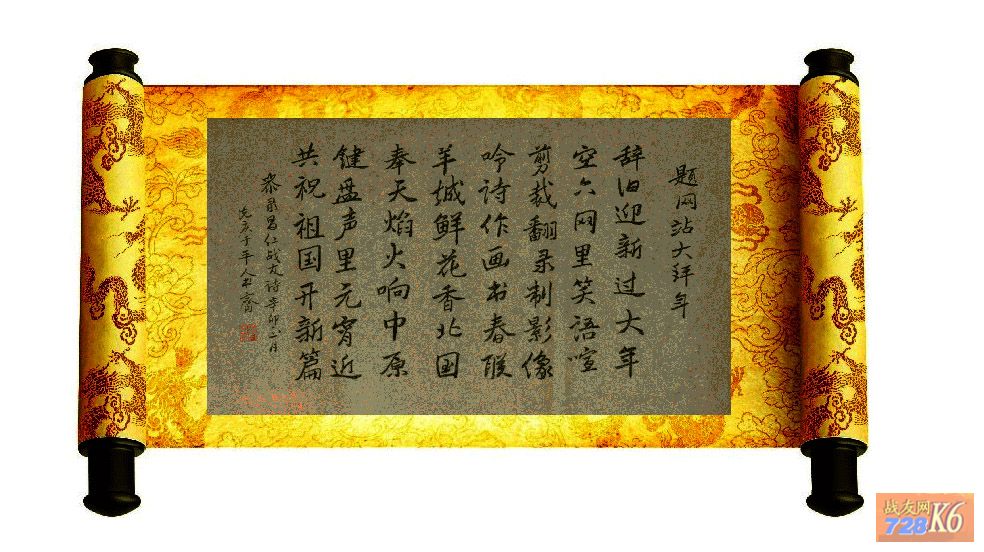 题网站大拜年
辞旧迎新过大年
空六网里笑语喧
剪裁翻录制影像
吟诗作画书春联
羊城鲜花香北国
奉天焰火响中原
键盘声里元宵近
共祝祖国开新篇
恭录昌仁战友诗辛卯正月
于平人书斋
战友网
728K6